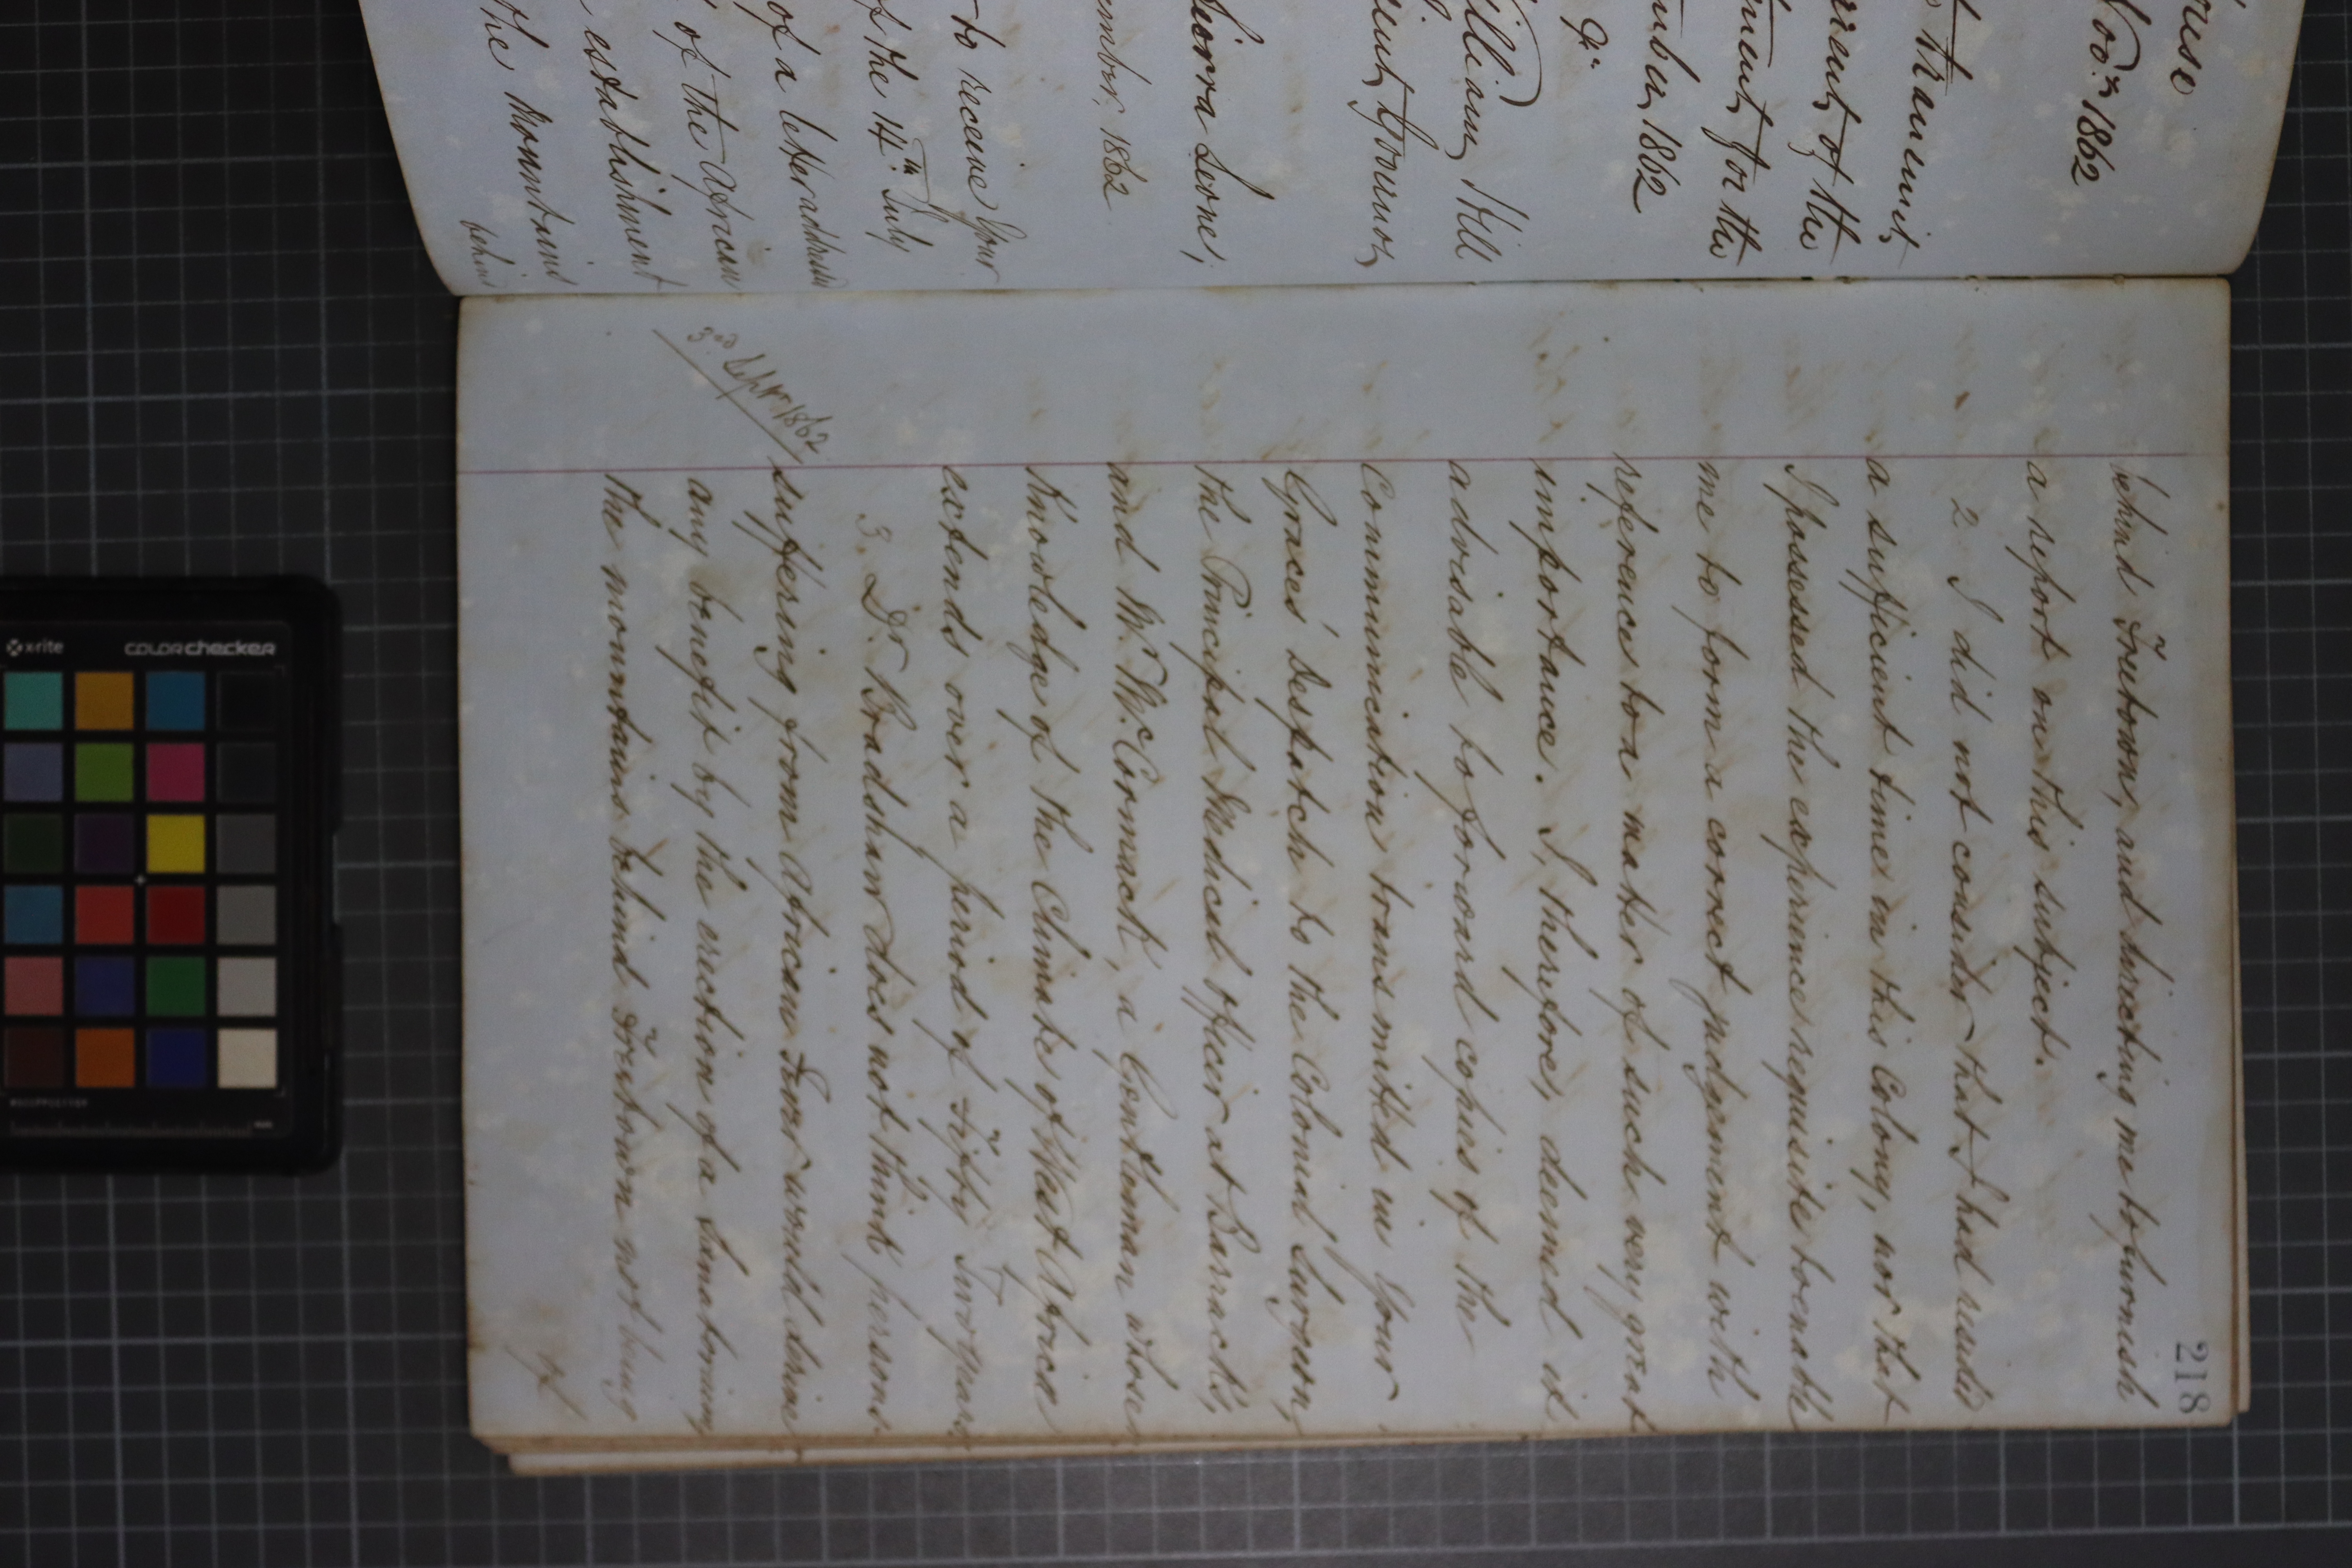 ouse
Nov.r 1862
transmit,
of the
for the
1862
&c
William Hill
Governor,
Sierra Leone,
ember, 1862
to receive Your
of the 14th July
of a letter addressed
of the African
establishment
the Mountains
behind
218
behind Freetown, and directing me to furnish
a report on this subject.
2. I did not consider that I had resided
a sufficient time in this Colony, nor that
I possessed the experience requisite to enable
me to form a correct judgement with
reference to a matter of such very great
importance. I, therefore, deemed it
advisable to forward copies of the
Communication transmitted in Your
Grace's Despatch to the Colonial Surgeon,
the Principal Medical officer at Barracks,
and Mr. McCormack, a Gentleman whose
Knowledge of the Climate of West Africa
extends over a period of Fifty Two years
3. Dr Bradshaw does not think persons
3rd Sept. 1862
suffering from African Fever would derive
any benefit by the erection of a Sanatorium
the mountains behind Freetown not being
of
x-rite
colorchecker